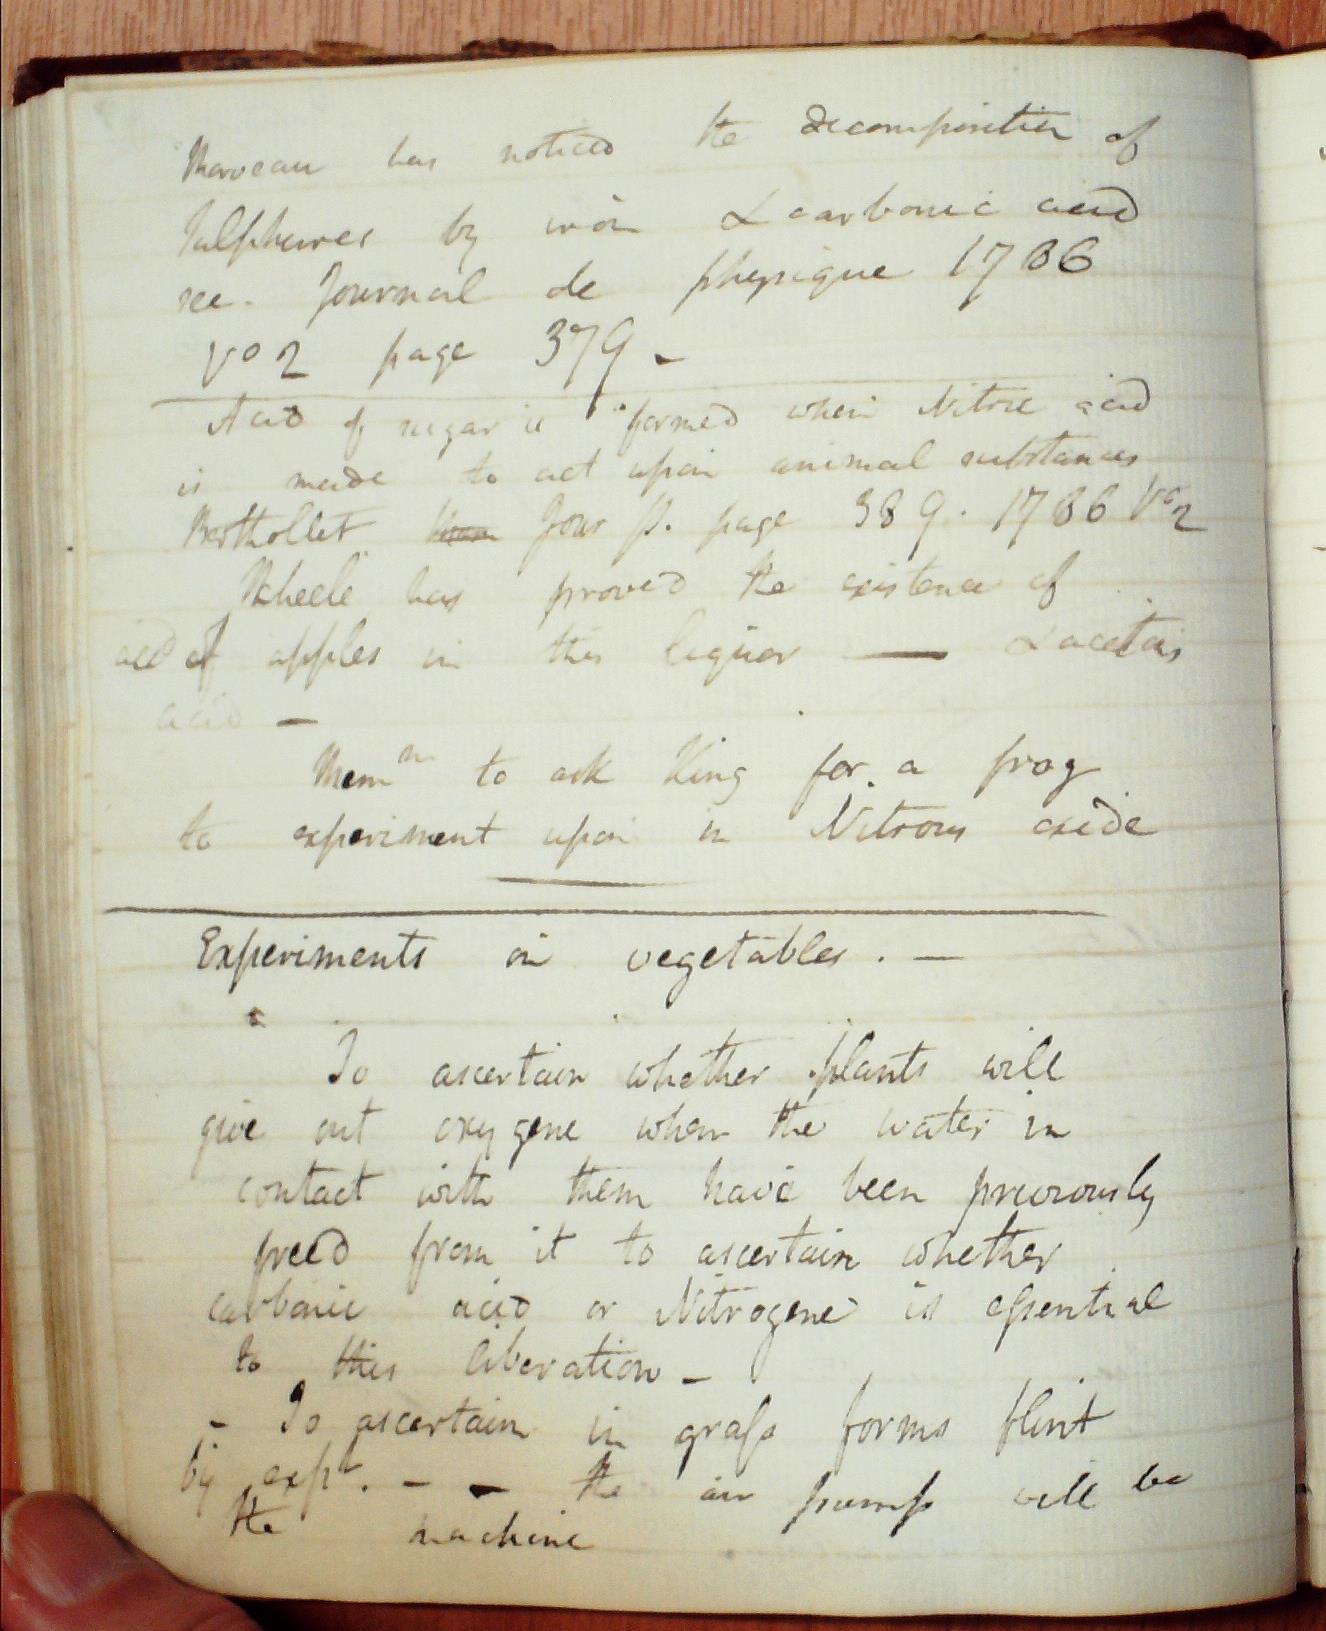 Morveau has noticed the decomposition of
Sulphures by iron & carbonic acid
see. Journal de physique 1786
Vo 2 page 379 -
Acid of sugar is formed when Nitric acid
is made to act upon animal substances
Berthollet Jour p. page 389. 1786 Vo 2
Scheele has proved the existence of
acid of apples in this liquor — & acetous
acid —
Memm to ask King for a frog
to experiment upon in Nitrous oxide
Experiments on vegetables. —
To ascertain whether plants will
give out oxygene when the water in
contact with them have been previously
freed from it to ascertain whether
carbonic acid or Nitrogene is essential
to this liberation -
- To ascertain in grass forms flint
by expt. - - the air pump will be
the machine